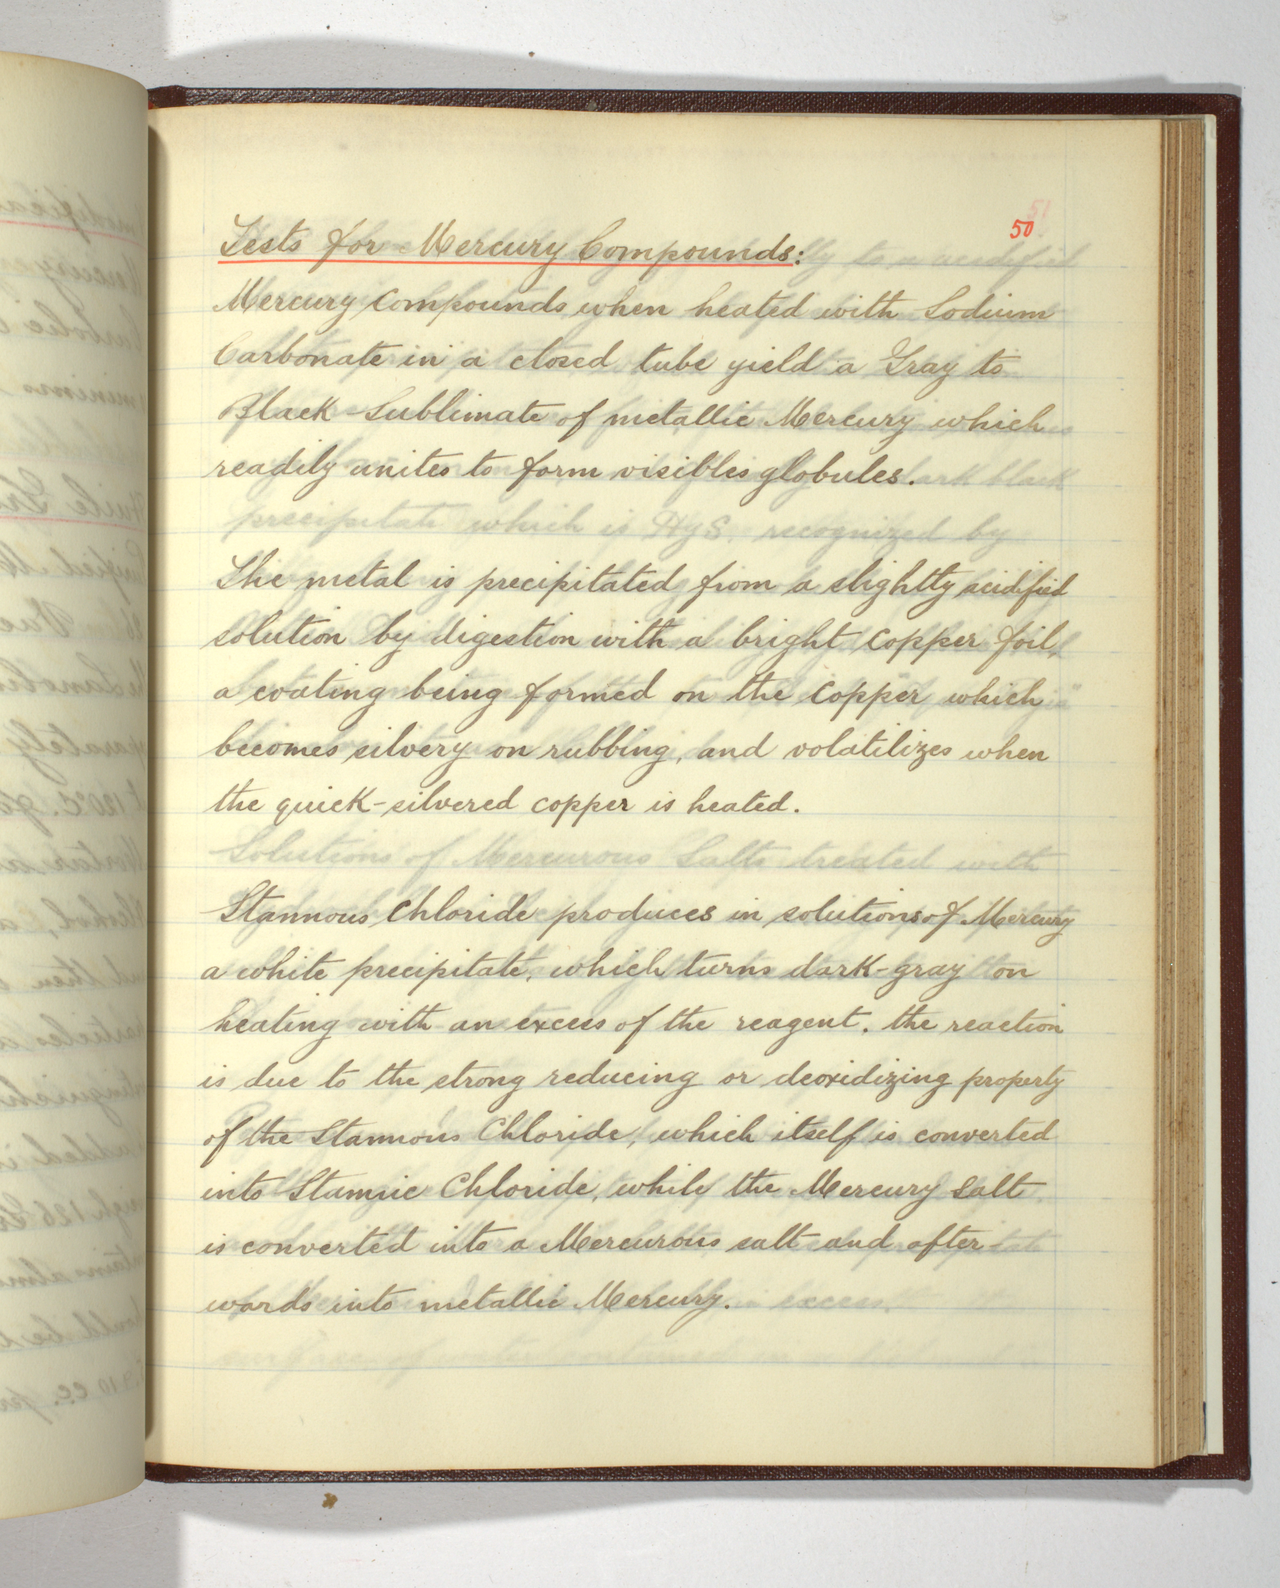 50
Tests for Mercury Compounds:
Mercury Compounds when heated with Sodium
Carbonate in a closed tube yield a Gray to
Black Sublimate of metallic Mercury which
readily unites to form visibles globules.
The metal is precipitated from a slightly acidified
solution by digestion with a bright Copper foil,
a coating being formed on the Copper which
becomes silvery on rubbing, and volatilizes when
the quick-silvered copper is heated.
Stannous Chloride produces in solutions of Mercury
a white precipitate, which turns dark-gray on
heating with an excess of the reagent. the reaction
is due to the strong reducing or deoxidizing property
of the Stannous Chloride, which itself is converted
into Stannic Chloride, while the Mercury salt
is converted into a Mercurous salt and after
wards into metallic Mercury.